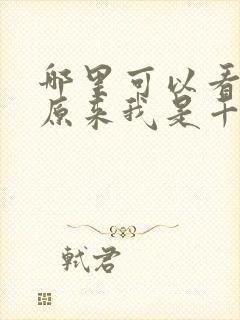 哪里可以看
原来我是十
轼君